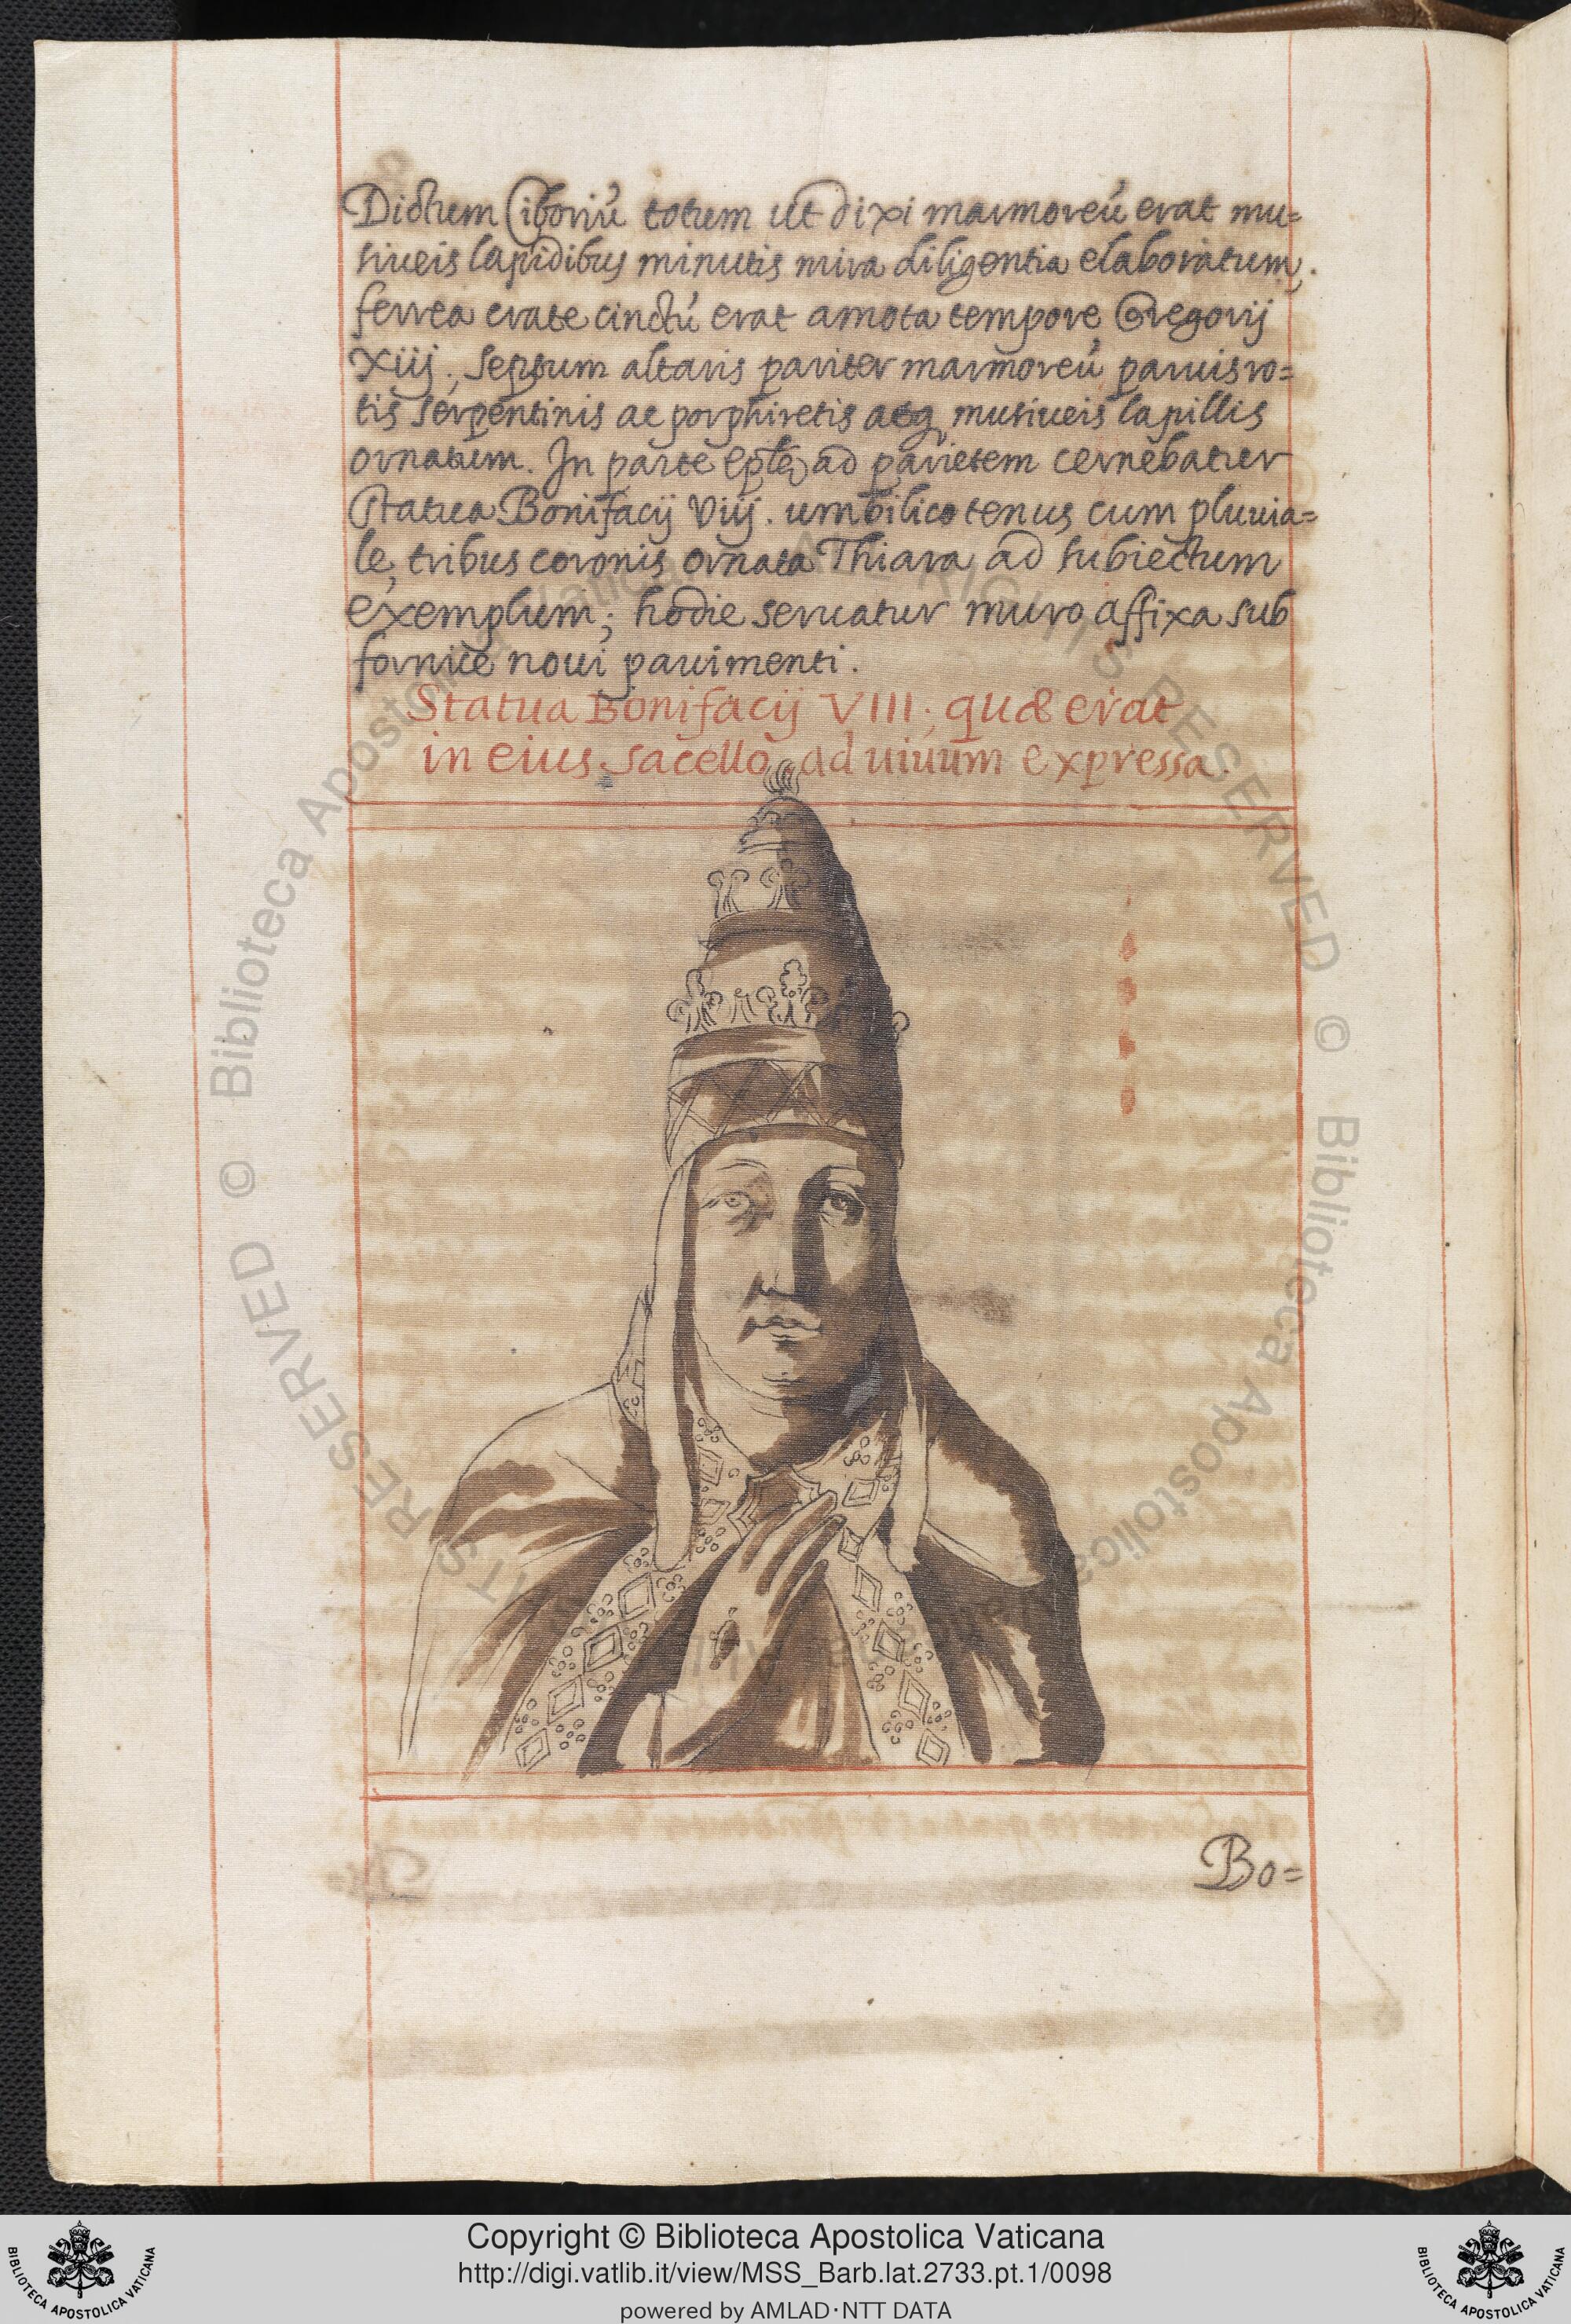 Dictum Ciboriũ totum ut dixi marmoreũ erat mu=
siueis lapidibus minutis mira diligentia elaboratum,
ferrea crate cinctũ erat amota tempore Gregorij
Xiij; septum altaris pariter marmoreũ paruis ro=
tis serpentinis ac porphiretis atq musiueis lapillis
ornatum. In parte Eplẽ ad parietem cernebatur
statua Bonifacij Viij. umbilico tenus cum pluuia=
le, tribus coronis ornata Thiara ad subiectum
exemplum; hodie seruatur muro affixa sub
fornice noui pauimenti.
Statua Bonifacij VIII. quæ erat
in eius sacello ad uiuum expressa.
Bo=
Copyright © Biblioteca Apostolica Vaticana
http://digi.vatlib.it/view/MSS_Barb.lat.2733.pt.1/0098
powered by AMLAD·NTT DATA
BIBLIOTECA APOSTOLICA VATICANA
BIBLIOTECA APOSTOLICA VATICANA